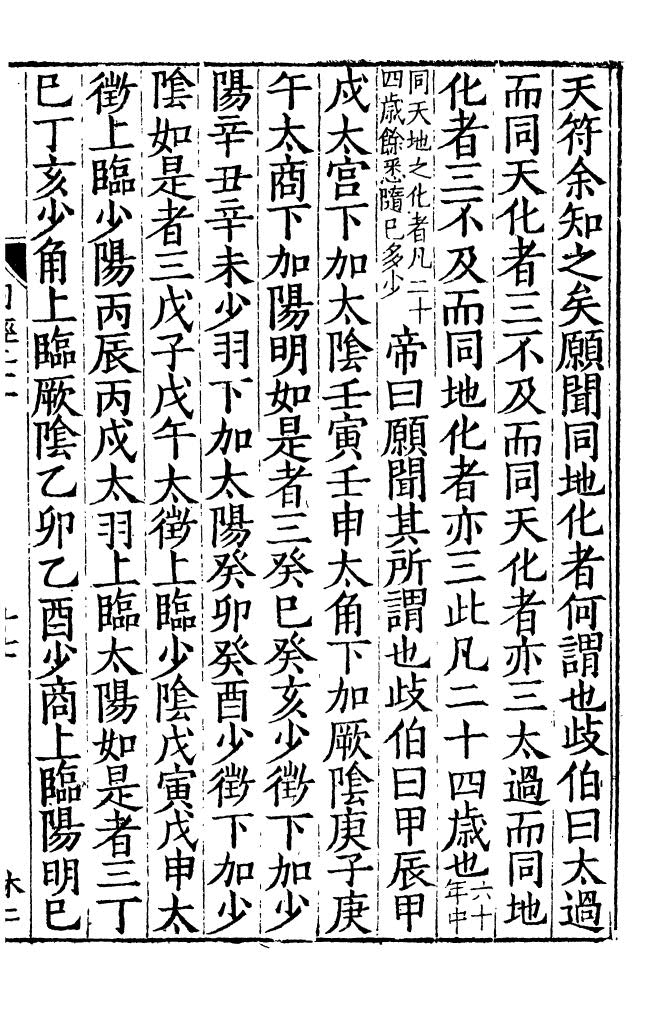 天符余知之矣願聞同地化者何謂也歧伯曰太過
而同天化者三不及而同天化者亦三太過而同地
化者三不及而同地化者亦三此凡二十四歳也六十年中
同天地之化者凡二十四歳餘悉隨巳多少帝曰願聞其所謂也歧伯曰甲辰甲
戍太宫下加太陰壬寅壬申太角下加厥陰庚子庚
午太商下加陽明如是者三癸巳癸亥少徵下加少
陽辛丑辛未少羽下加太陽癸卯癸酉少徵下加少
陰如是者三戊子戊午太徵上臨少陰戊寅戊申太
徵上臨少陽丙辰丙戍太羽上臨太陽如是者三丁
巳丁亥少角上臨厥陰乙卯乙酉少商上臨陽明巳